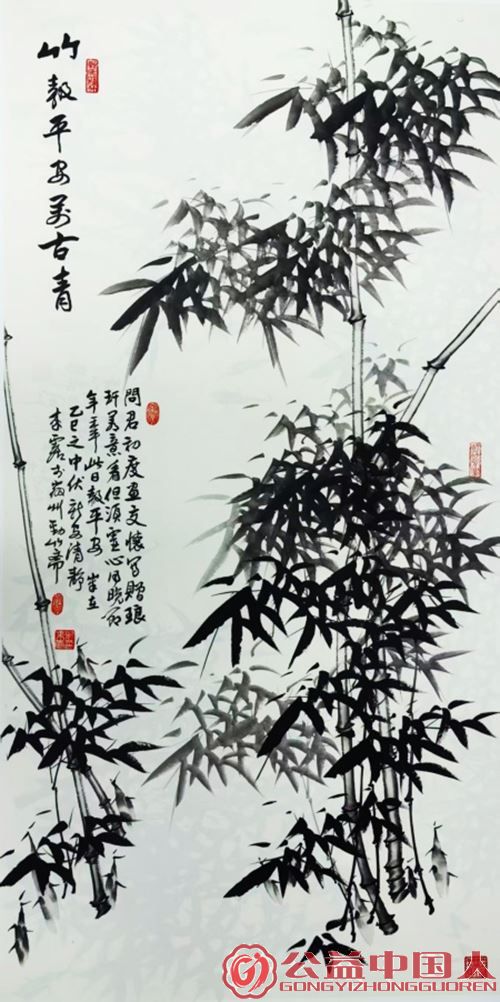 竹報平安萬古青
問君初度畫交懷寫贈琅
玕着意看但須虛心同晚節
年年此日報平安 歲在
乙巳之中伏 新安清靜
於宿州勁竹齋
公益中国人
GONGYIZHONGGUOREN